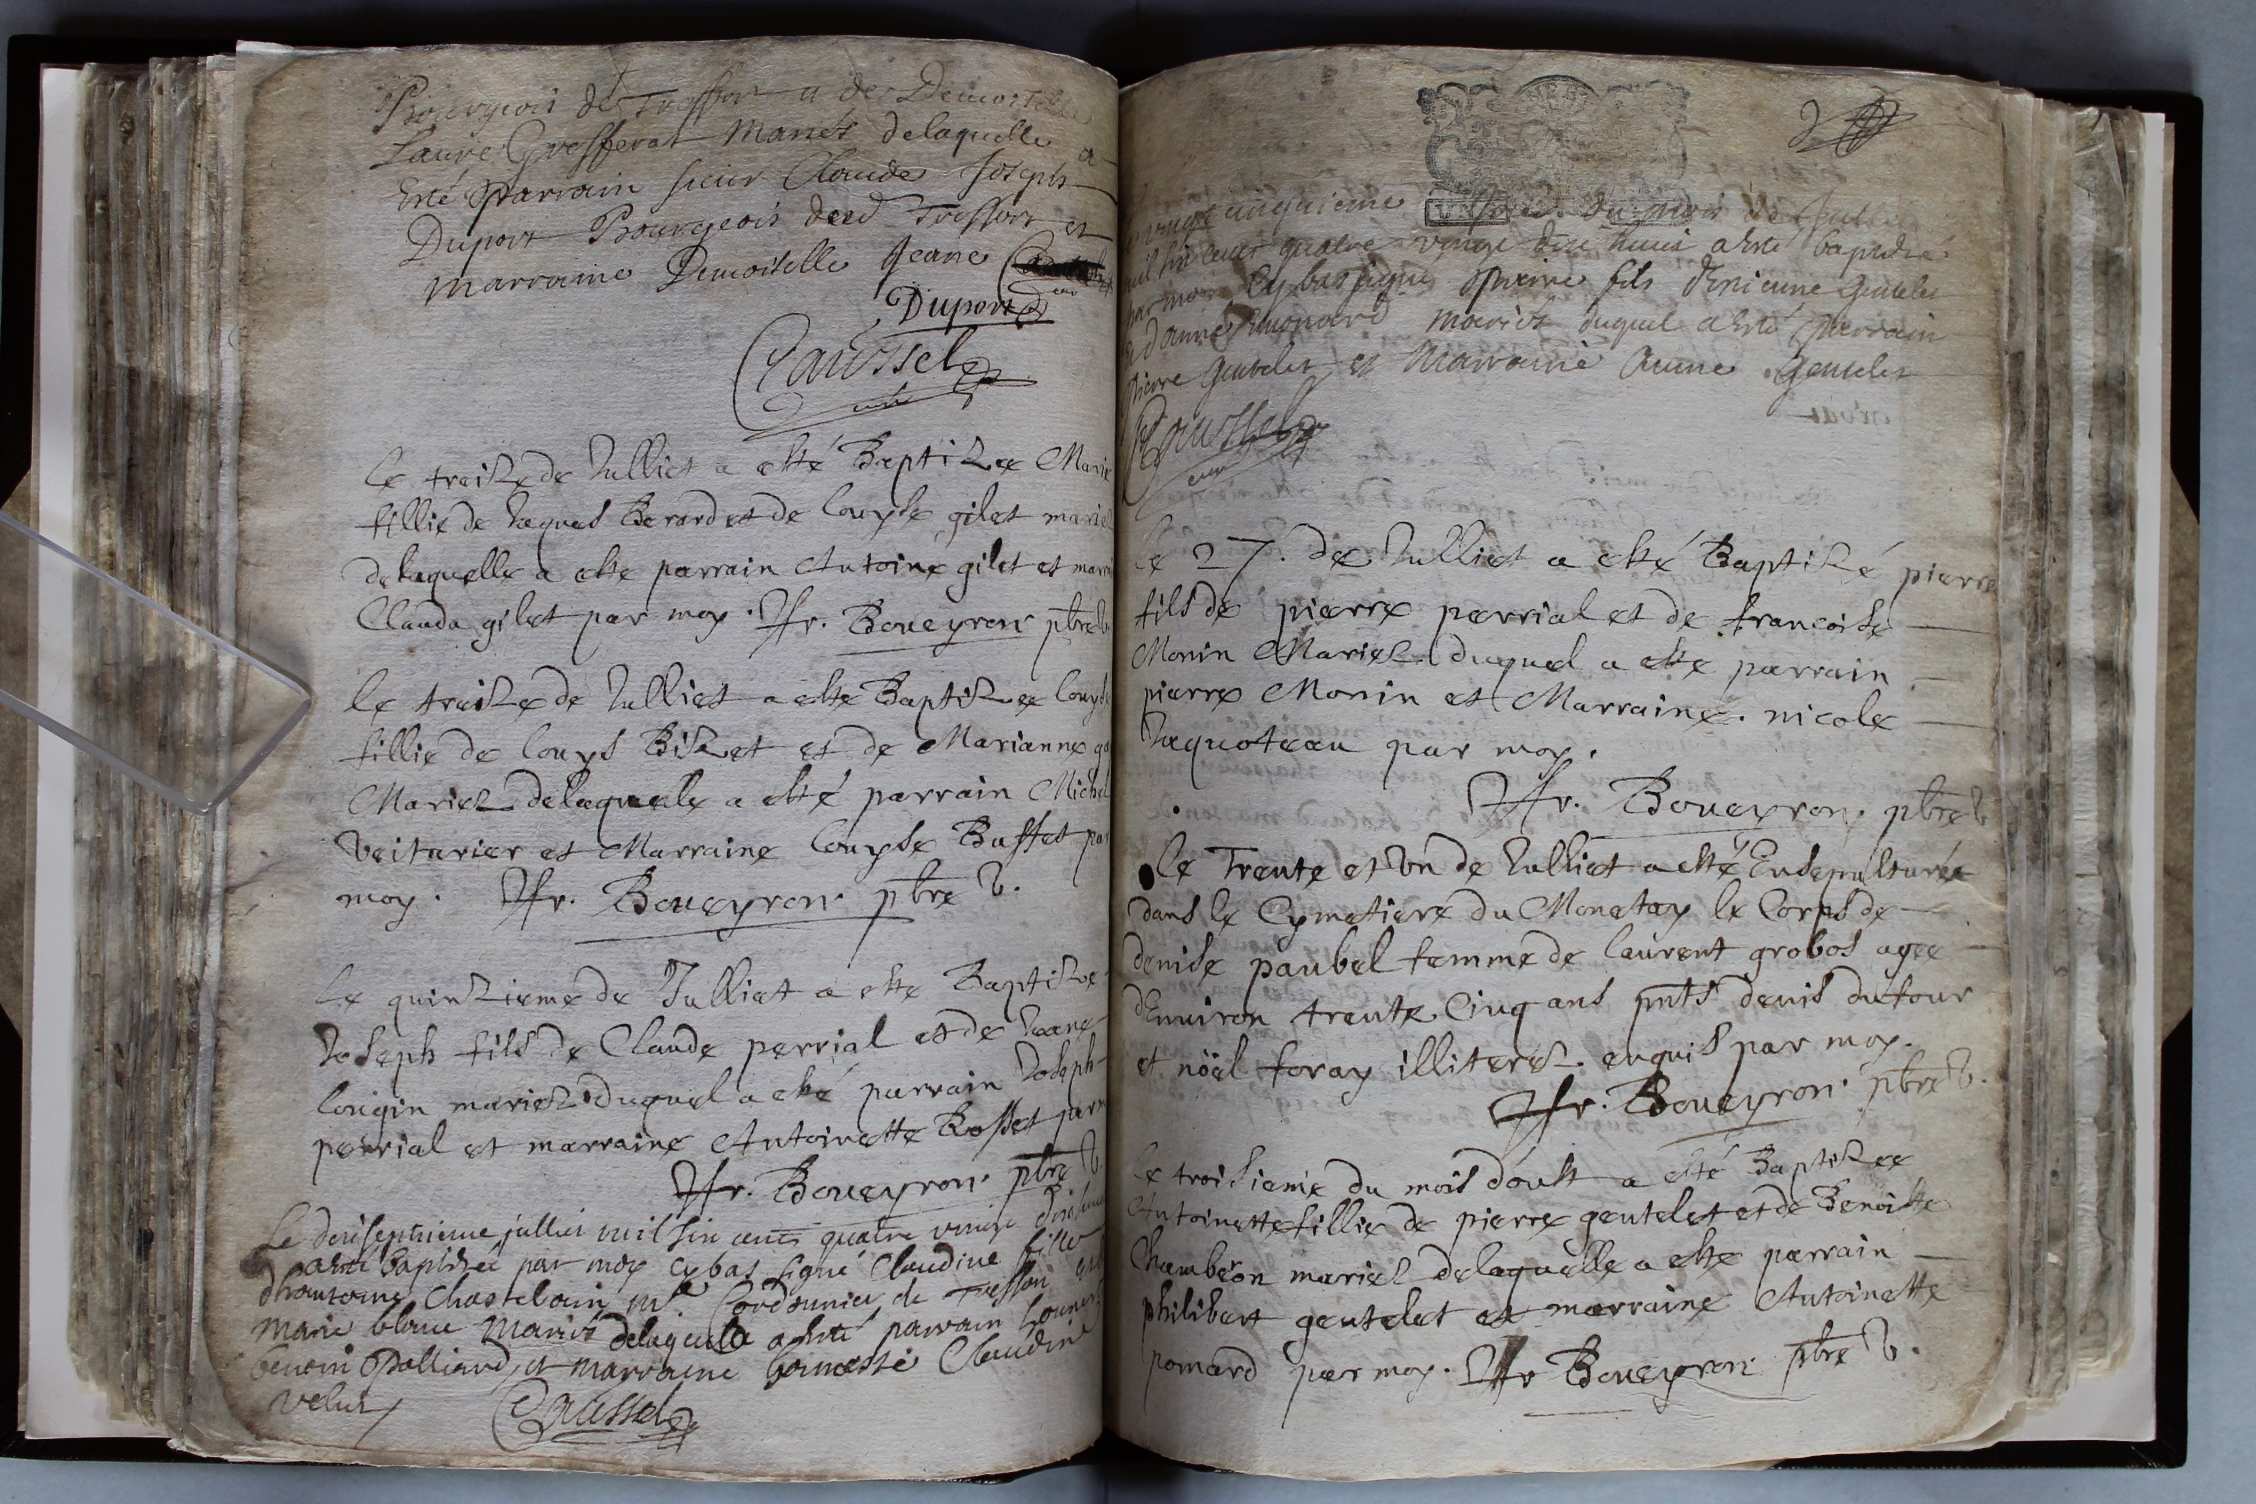 Bourgeois de Treffort et de Demoiselle
Laure Grosferat Mariés delaquelle a
esté Parrain sieur Claude Joseph
Duport Bourgeois dud Treffort et
marraine Demoiselle Jeane
Duport
Caussel
curé
le traize de Julliet a esté Baptizee Marie
fillie de Jaques Berard et de Louyse gilet mariez
delaquelle a esté parrain Antoine gilet et marr
Clauda gilet par moy. Fr. Boueyron pbre V.
le traize de Julliet a esté Baptizee Louyse
fillie de Louys Bizet et de Marianne
Mariez delaquele a esté parrain Michel
Veiturier et Marraine Louyse Buffet par
moy. Fr. Boueyron pbre V.
le quinzieme de Julliet a esté Baptizé
Joseph fils de Claude perrial et de Jeane
longin mariez duquel a esté parrain Joseph
perrial et marraine Antoinette Rosset par m
Fr. Boueyron. pbre V.
Le dixseptrieme juillet mil six cents quatre vingt dixhuict
a esté baptizée par moy cy bas signé Claudine fille
dhantoine Chastelain Mr. Cordonnier de Treffort et
Marie blanc Mariés delaquelle a esté parrain honneste
benoit Palliard et marraine honneste Claudine
velut
Caussel
vingt cinquieme du mois de Juillet
mil six cent quatre vingt dix huict a esté baptizé
par moy cy bas signé Pierre fils d'Etienne Gentelet
et d'anne mariés duquel a esté Parrain
Pierre Gentelet et Marraine Anne Gentelet
Caussel
curé
le 27. de Julliet a esté Baptizé pierre
fils de pierre perrial et de francoise
Monin Mariez duquel a esté parrain
pierre Monin et Marraine. nicole
Jaquoteau par moy.
Fr. Boueyron. pbre V
le Trente et un de Julliet a esté Ensepulturée
dans le Cymetiere du Monetay le Corps de
denise paubel femme de laurent grobos agee
d'Environ trente Cinq ans pnts denis dufour
et nöel foray illiterez. enquis par moy.
Fr. Boueyron. pbre V.
le troisieme du mois d'oust a esté Baptizee
Antoinette fillie de pierre gentelet et de Benoitte
Chamberon mariez delaquelle a esté parrain
philibert gentelet et marraine Antoinette
pomard par moy. Fr Boueyron pbre V.